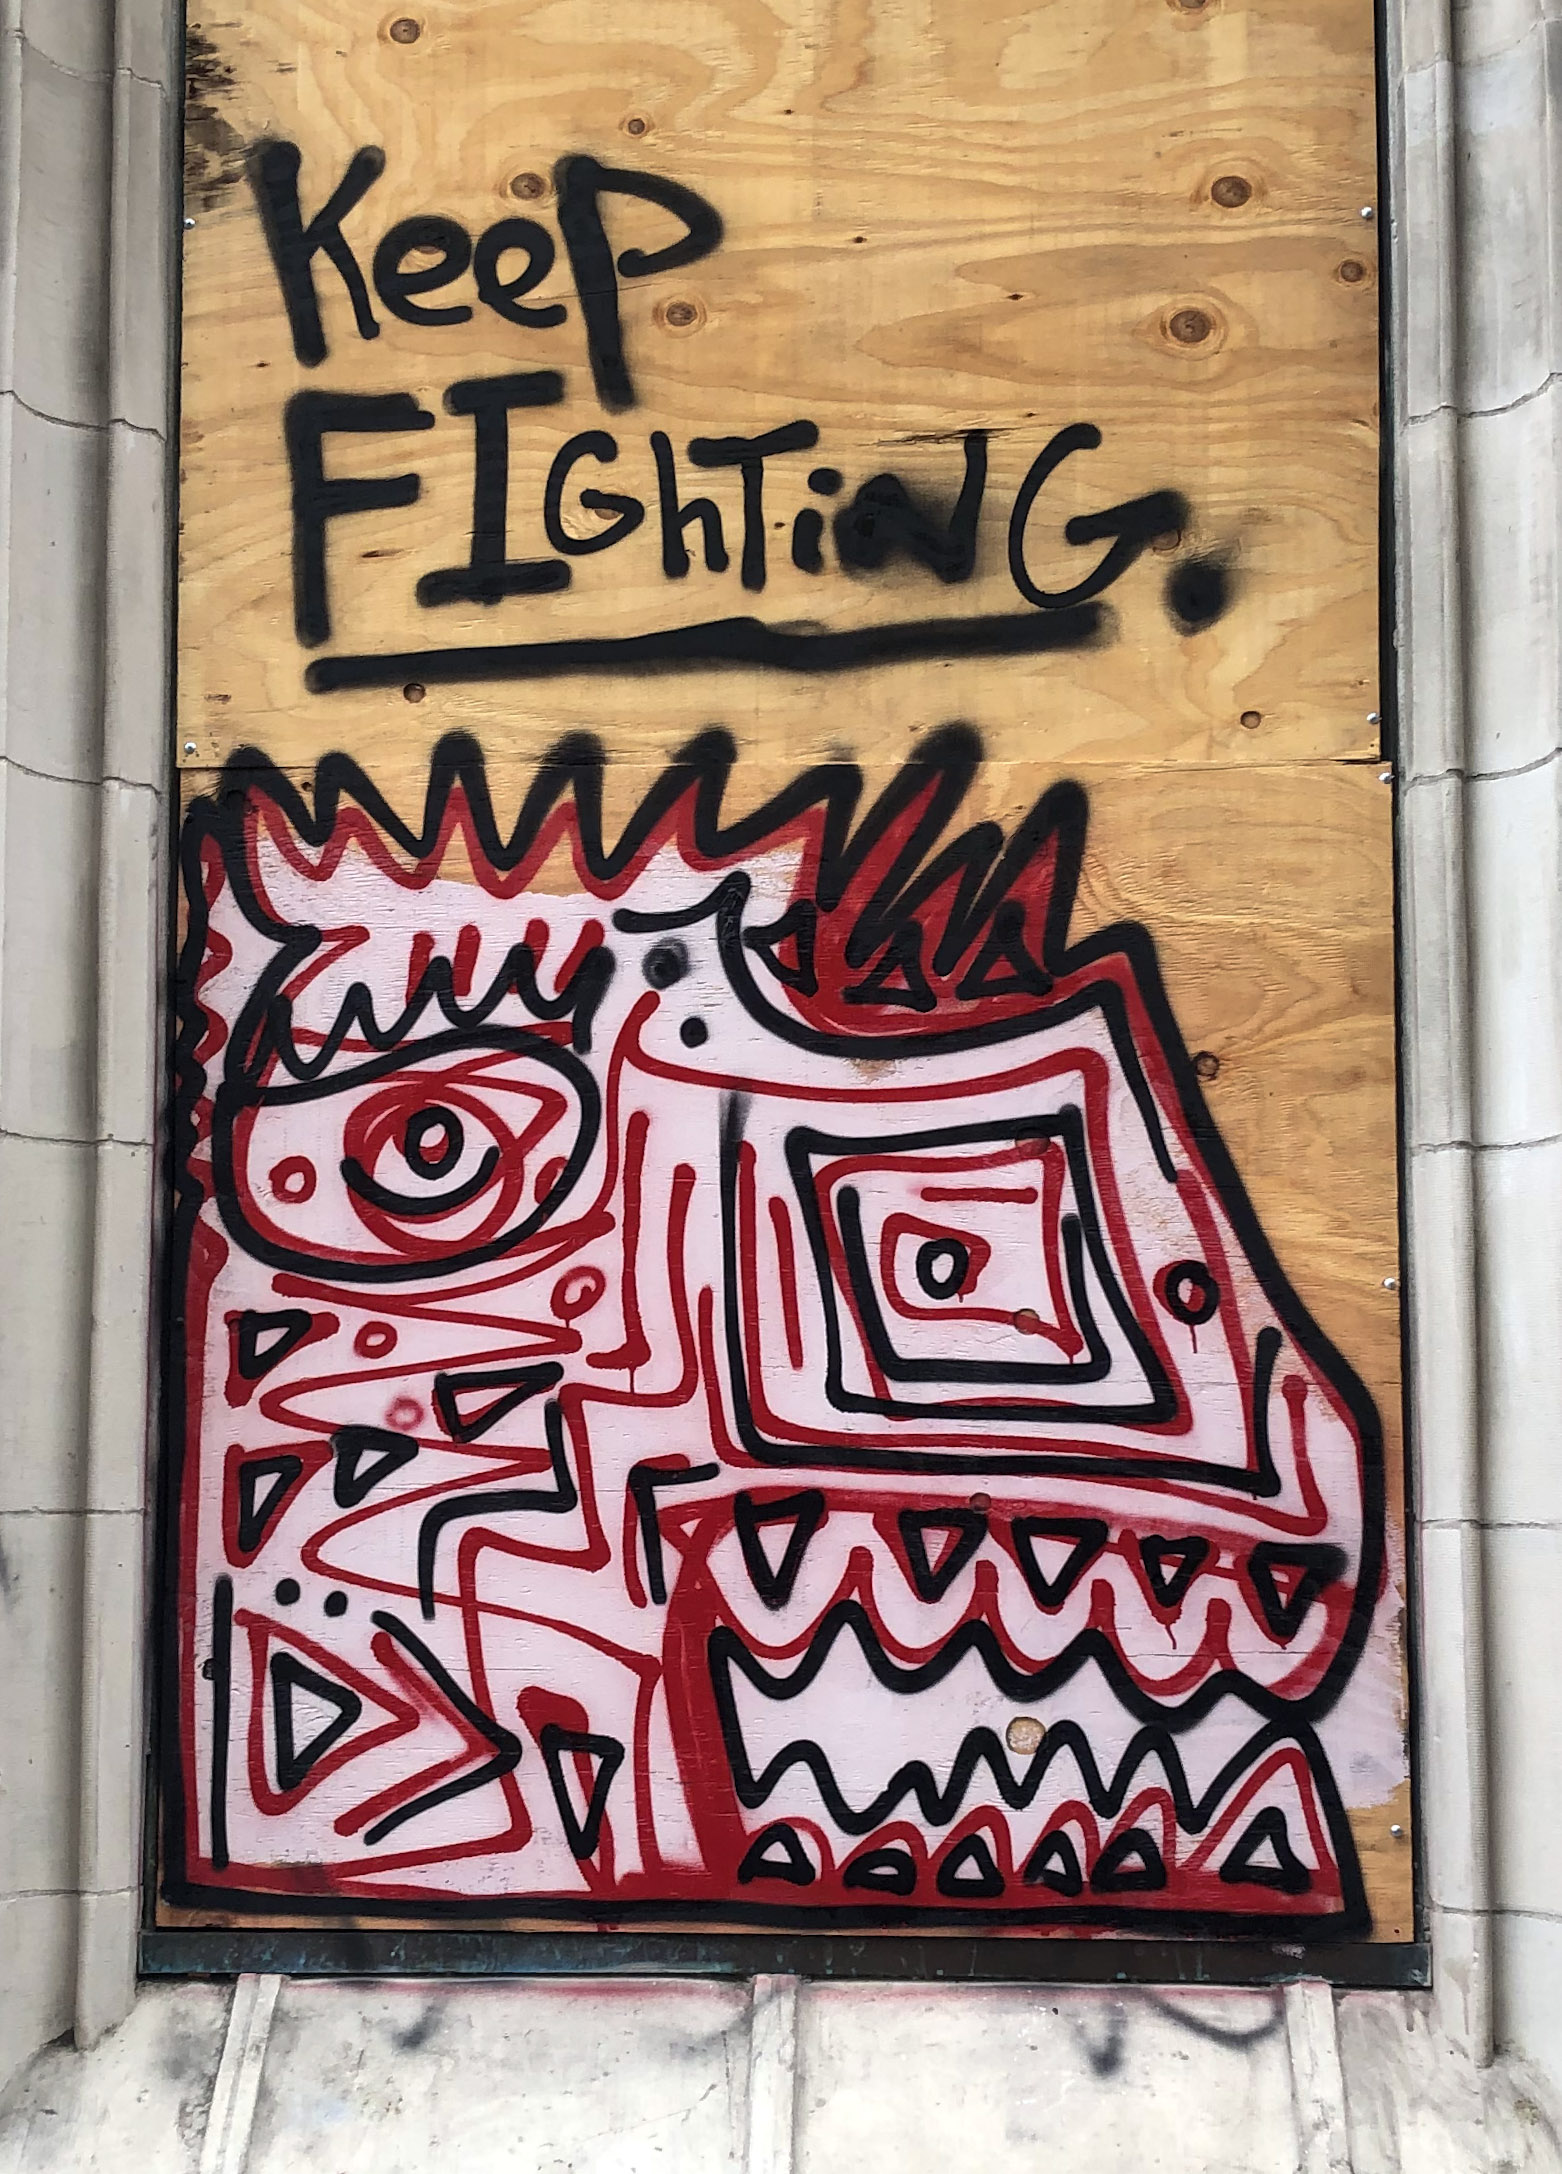 Keep
FIGhTiNG.